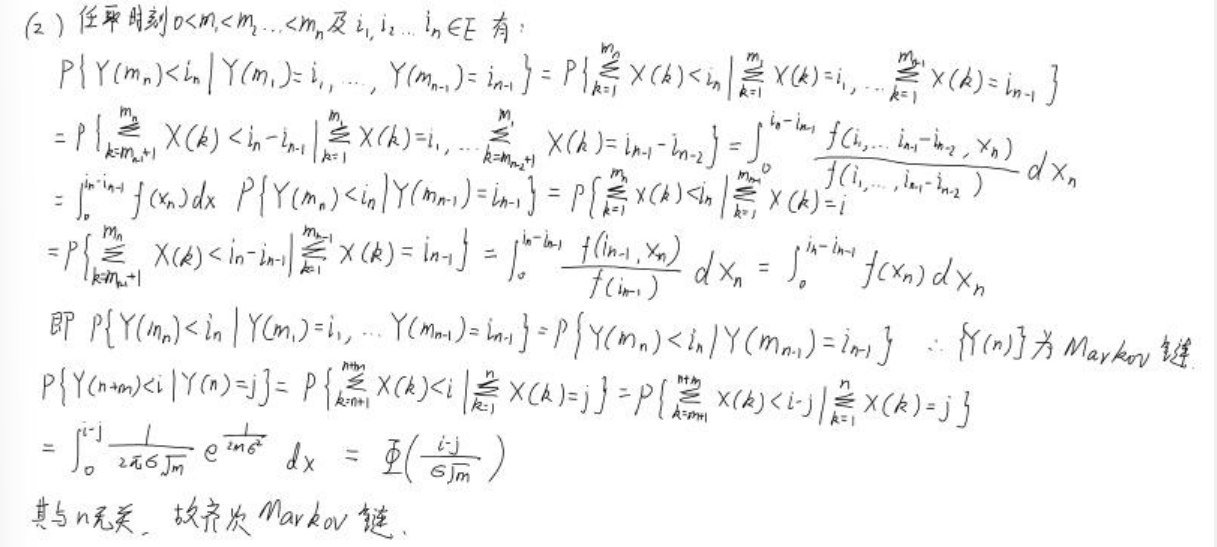 (2) 任取时刻 0<m₁<m₂...<mₙ 及 i₁, i₂... iₙ∈E 有:
P{Y(mₙ)<iₙ | Y(m₁)=i₁, ..., Y(mₙ₋₁)=iₙ₋₁} = P{∑_{k=1}^{mₙ} X(k)<iₙ | ∑_{k=1}^{m₁} X(k)=i₁, ... ∑_{k=1}^{mₙ₋₁} X(k)=iₙ₋₁}
= P{∑_{k=mₙ₋₁+1}^{mₙ} X(k)<iₙ-iₙ₋₁ | ∑_{k=1}^{m₁} X(k)=i₁, ... ∑_{k=mₙ₋₂+1}^{m₁} X(k)=iₙ₋₁-iₙ₋₂} = ∫_0^{iₙ-iₙ₋₁} f(i₁,... iₙ₋₁-iₙ₋₂, xₙ)/f(i₁,..., iₙ₋₁-iₙ₋₂) dxₙ
= ∫_0^{iₙ-iₙ₋₁} f(xₙ)dx P{Y(mₙ)<iₙ | Y(mₙ₋₁)=iₙ₋₁} = P{∑_{k=1}^{mₙ} X(k)<iₙ | ∑_{k=1}^{mₙ₋₁} X(k)=i
= P{∑_{k=mₙ₋₁+1}^{mₙ} X(k)<iₙ-iₙ₋₁ | ∑_{k=1}^{mₙ₋₁} X(k)=iₙ₋₁} = ∫_0^{iₙ-iₙ₋₁} f(iₙ₋₁, xₙ)/f(iₙ₋₁) dxₙ = ∫_0^{iₙ-iₙ₋₁} f(xₙ)dxₙ
即 P{Y(mₙ)<iₙ | Y(m₁)=i₁, ... Y(mₙ₋₁)=iₙ₋₁} = P{Y(mₙ)<iₙ | Y(mₙ₋₁)=iₙ₋₁} ∴ {Y(n)}为 Markov 链.
P{Y(n+m)<i | Y(n)=j} = P{∑_{k=n+1}^{n+m} X(k)<i | ∑_{k=1}^{n} X(k)=j} = P{∑_{k=m+1}^{n+m} X(k)<i-j | ∑_{k=1}^{n} X(k)=j}
= ∫_0^{i-j} 1/(2πσ√m) e^{1/(2mσ²)} dx = Φ((i-j)/(σ√m))
其与n无关, 故齐次 Markov 链.